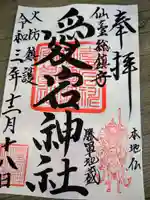 奉拝
本地仏
勝軍地蔵
仙台総鎮守
愛宕神社
火防鎮護
令和三年十一月十八日